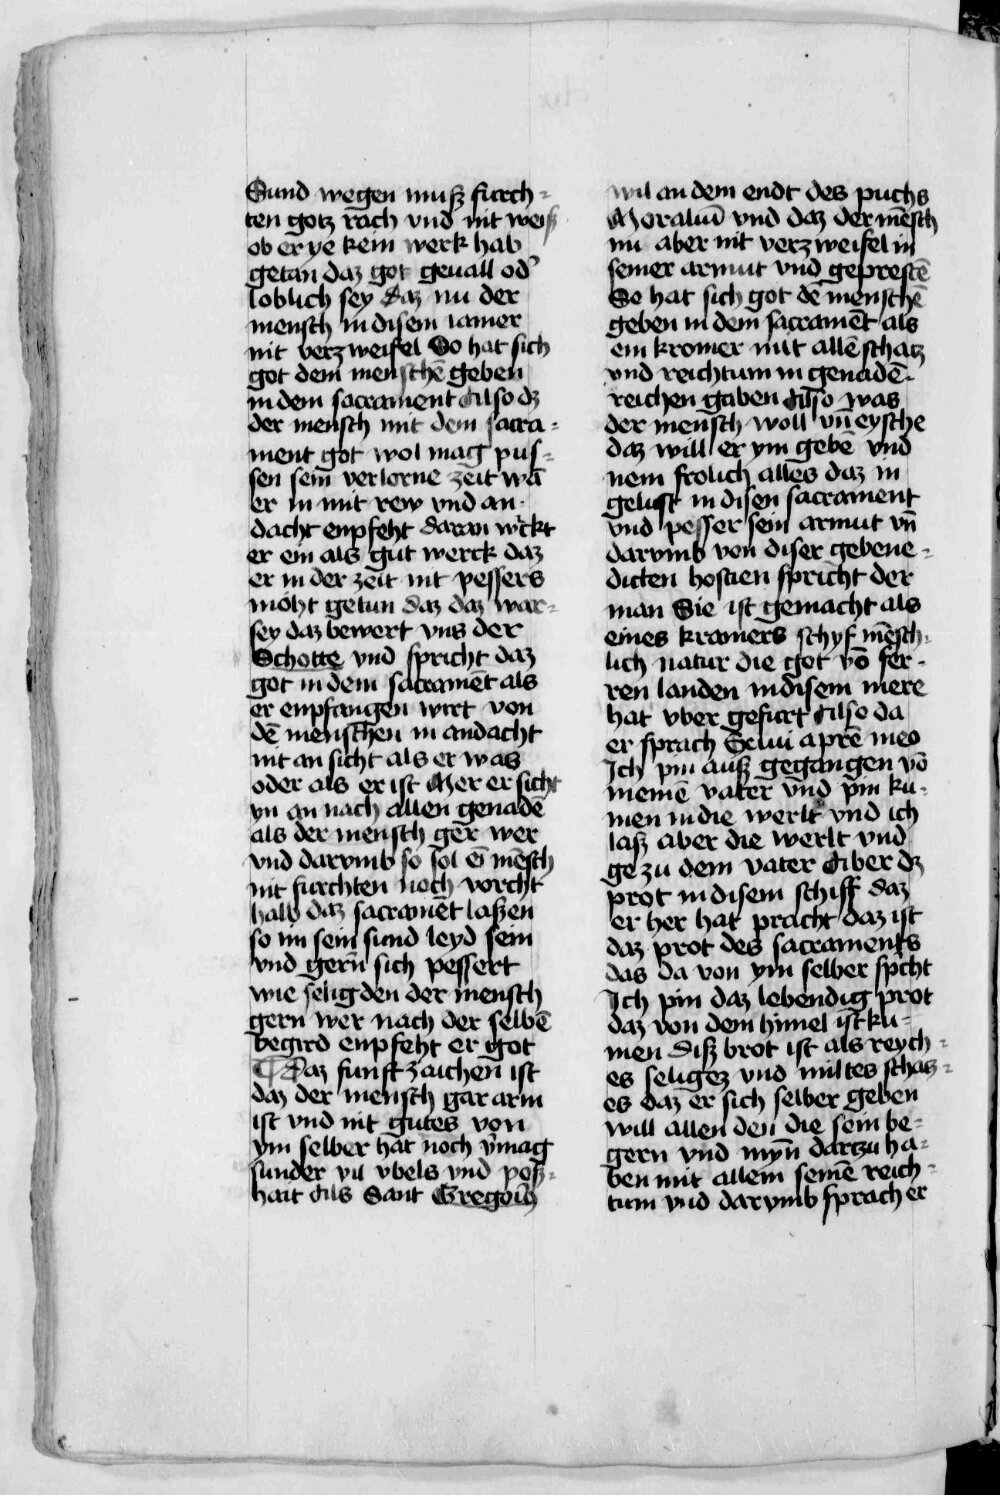 Sund wegen muß furch-
ten gotz rach vnd nit weiß
ob er ye kein werk hab
getan daz got geuall od'
loblich sey daz nu der
mensch in disem iamer
nit verzweifel So hat sich
got dem menschē geben
in dem sacrament Also dz
der mensch mit dem sacra-
ment got wol mag pus-
sen sein verlorne zeit wā
er in mit rew vnd an-
dacht enpfeht daran w'ckt
er ein als gut werck daz
er in der zeit nit pessers
möht getun daz daz war-
sey daz bewert vns der
Schotte vnd spricht daz
got in dem sacramēt als
er enpfangen wirt von
dē menschen in andacht
nit an sicht als er was
oder als er ist Mer er sicht
yn an nach allen genadē
als der mensch ger wer
vnd darvmb so sol ei mēsch
nit furchten noch vorcht
halb daz sacramēt laßen
so im sein sund leyd sein
vnd gern sich pessert
wie selig den der mensch
gern wer nach der selbē
begird enpfeht er got
¶ Daz funft zaichen ist
daz der mensch gar arm
ist vnd nit gutes von
ym selber hat noch v'mag
sunder vil vbels vnd poß-
hait Als Sant Gregorius
wil an dem endt des puchs
Moraliū vnd daz der mēsch
nu aber nit verzweifel in
seiner armut vnd geprestē
So hat sich got dē menschē
geben in dem sacramēt als
ein kromer mit allē schatz
vnd reichtum in genadē-
reichen gaben Also was
der mensch woll vn̄ eysche
daz will er ym gebē vnd
nem frolich alles daz in
gelust in disen sacrament
vnd pesser sein armut vn̄
darvmb von diser gebene-
dicten hostien spricht der
man Sie ist gemacht als
eines kramers schyf mēsch-
lich natur die got vō fer-
ren landen in disem mere
hat vber gefurt Also da
er sprach Exiui a prē meo
Ich pin auß gegangen vō
meinē vater vnd pin ku-
men in die werlt vnd ich
laß aber die werlt vnd
ge zu dem vater Aber dz
prot in disem schiff daz
er her hat pracht daz ist
daz prot des sacraments
das da von ym selber sp'cht
Ich pin daz lebendig prot
daz von dem himel ist ku-
men diß brot ist als reych-
es seligez vnd miltes schatz-
es daz er sich selber geben
will allen den die sein be-
gern vnd myn̄ dartzu ha-
ben mit allem seinē reich-
tum vnd darvmb sprach er